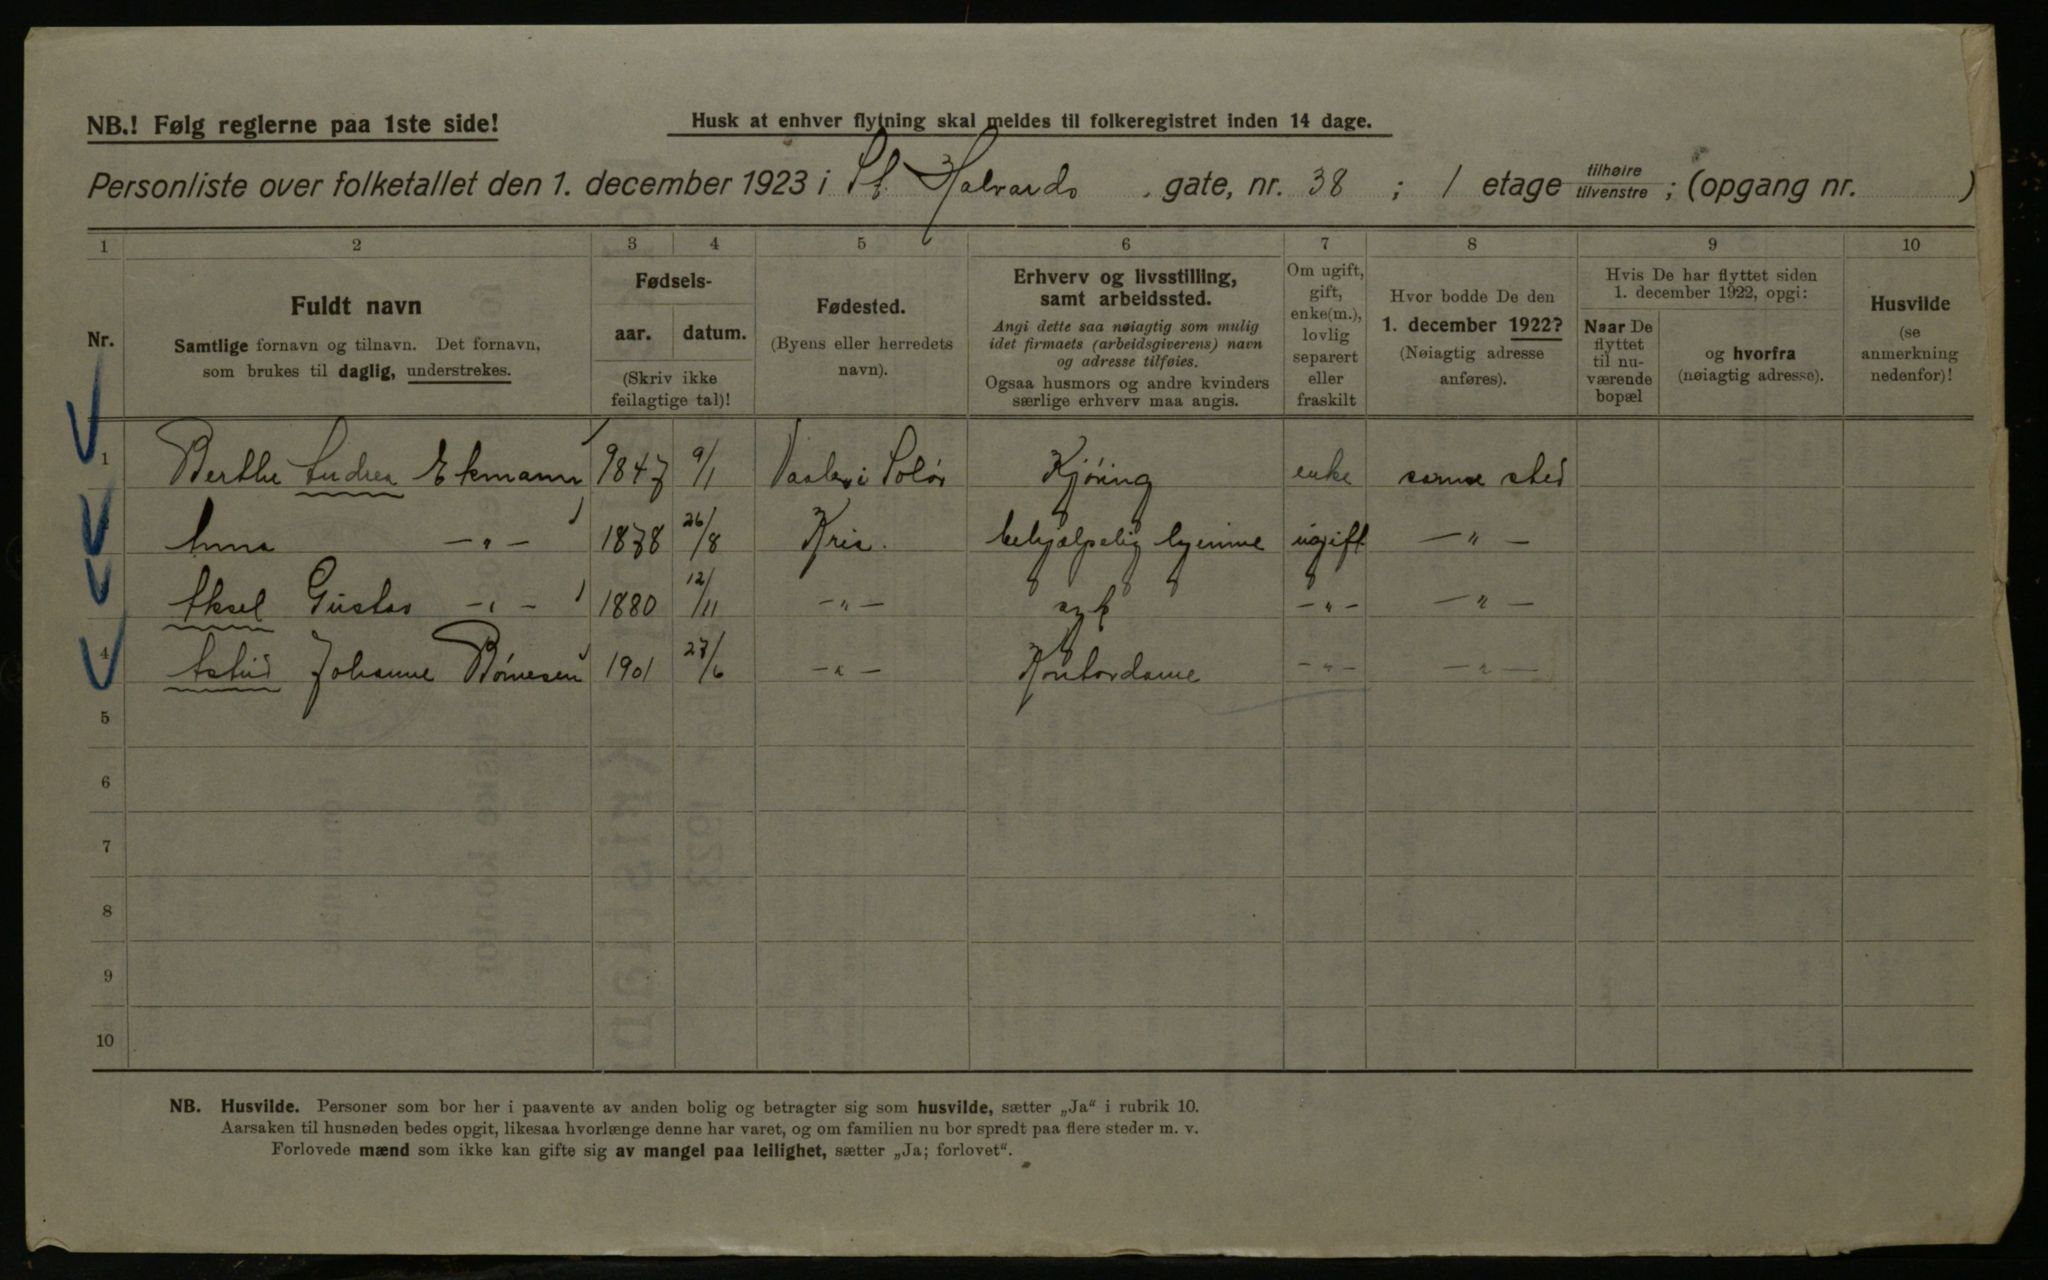 NB.! Følg reglerne paa 1ste side!
Husk at enhver flytning skal meldes til folkeregistret inden 14 dage.
Personliste over folketallet den 1. december 1923 i St. Halvards gate, nr. 38 ; 1 etage tilhøire tilvenstre ; (opgang nr. )
1 2 3 4 5 6 7 8 9 10
Nr.
Fuldt navn
Samtlige fornavn og tilnavn. Det fornavn,
som brukes til daglig, understrekes.
Fødsels-
aar. datum.
(Skriv ikke
feilagtige tal)!
Fødested.
(Byens eller herredets
navn).
Erhverv og livsstilling,
samt arbeidssted.
Angi dette saa nøiagtig som mulig
idet firmaets (arbeidsgiverens) navn
og adresse tilføies.
Ogsaa husmors og andre kvinders
særlige erhverv maa angis.
Om ugift,
gift,
enke(m.),
lovlig
separert
eller
fraskilt
Hvor bodde De den
1. december 1922?
(Nøiagtig adresse
anføres).
Hvis De har flyttet siden
1. december 1922, opgi:
Naar De
flyttet
til nu-
værende
bopæl
og hvorfra
(nøiagtig adresse).
Husvilde
(se
anmerkning
nedenfor)!
1 Berthe Andrea Ekmann 1847 9/1 Vaaler i Solør Kjøring enke samme sted
Anna —„— 1878 26/8 Kria. behjælpelig hjemme ugift —„—
Aksel Gustav —„— 1880 12/11 —„— syk —„— —„—
4 Astrid Johanne 1901 27/6 —„— Kontordame —„— —„—
5
6
7
8
9
10
NB. Husvilde. Personer som bor her i paavente av anden bolig og betragter sig som husvilde, sætter „Ja“ i rubrik 10.
Aarsaken til husnøden bedes opgit, likesaa hvorlænge denne har varet, og om familien nu bor spredt paa flere steder m. v.
Forlovede mænd som ikke kan gifte sig av mangel paa leilighet, sætter „Ja; forlovet“.